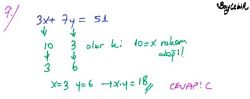 7.) 3x + 7y = 51
10 3 olur ki 10=x rakam değil!
3 6
x=3 y=6 → x.y=18 CEVAP: C